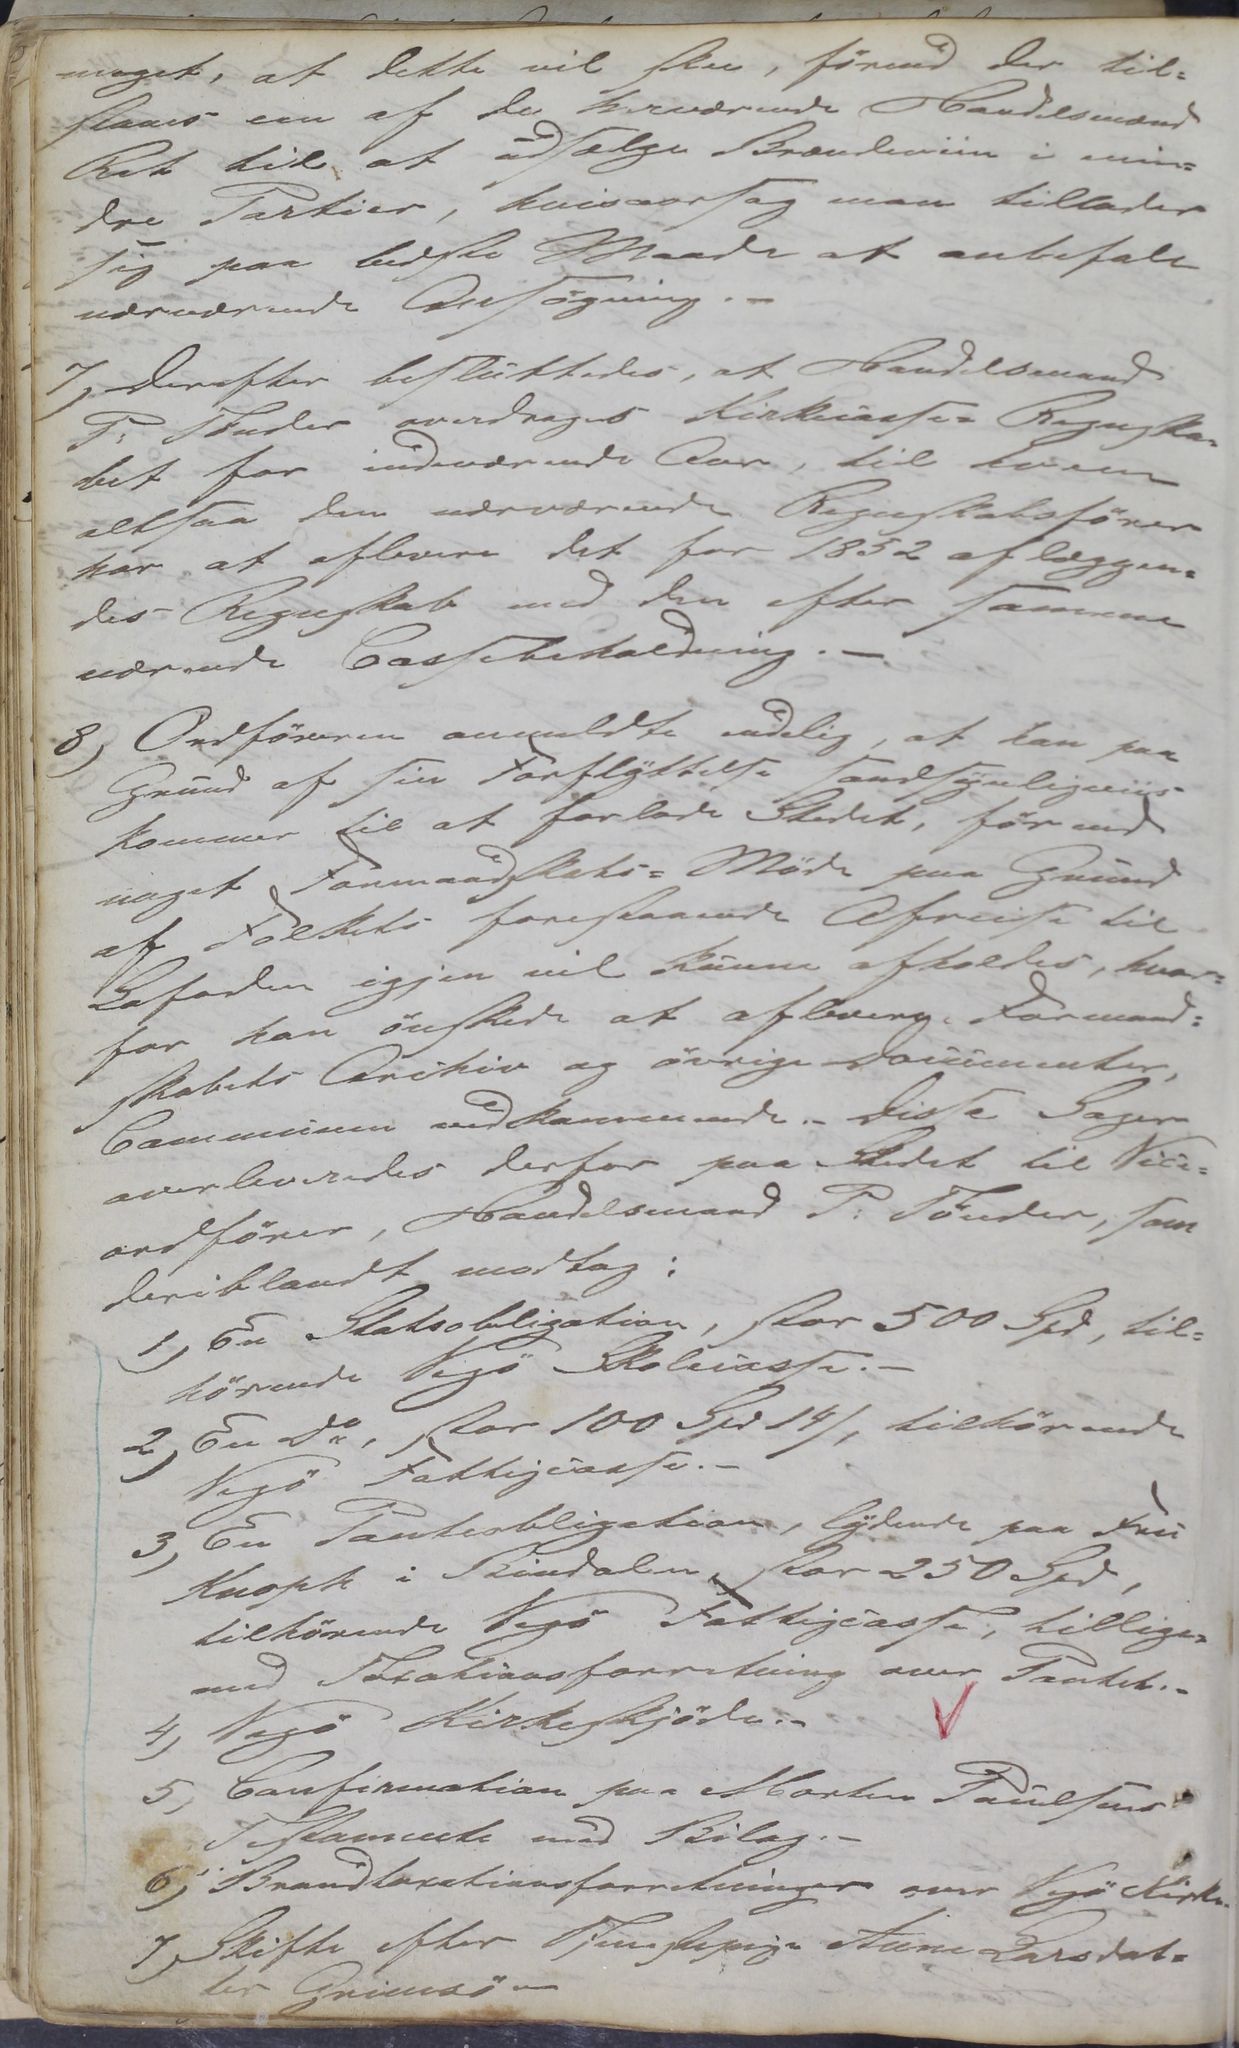 noget, at dette vil skee, förend der til=
staaes een af de herværende Handelsmænd
Ret til at udsælge Brændeviin i min=
dre Partier, hvisaarsag man tillader
sig paa bedste Maade at anbefale
nærværende Ansögning.—
7, Derefter besluttedes, at Handelsmand
P: Tönder overdrages Kirkecasse-Regnska-
bet for indeværende Aar, til hvem
altsaa den nærværende Regnskabsförer
har at aflevere det for 1852 aflæggen=
des Regnskab med den efter samme
værende Cassebeholdning.—
8, Ordföreren anmeldte endelig, at han paa
Grund af sin Forflyttelse sandsynligviis
kommer til at forlade Stedet, förend
noget Formandskabs=Möde paa Grund
af Folkets forestaaende Afreise til
Lofoden igjen vil kunne afholdes, hvor=
for han önskede at aflevere Formand=
skabets Archiv og övrige Documenter,
Communen vedkommende.- Disse Sager
overleveredes derfor paa Stedet til Vice=
ordförer, Handelsmand P: Tönder, som
deriblandt modtog:
1, En Statsobligation, stor 500 Spd, til=
hörende Vegö Skolecasse.—
2, En Do, stor 100 Spd 14/, tilhörende
Vegö Fattigcasse.—
3, En Panteobligation, lydende paa Fru
Knoph i Bindalen, stor 250 Spd,
tilhörende Vegö Fattigcasse, tillige=
med Taxationsforretning over Pantet.-
4, Vegö Kirkeskjöde.-
5, Confirmation paa Morten Paulsens
Testamente med Bilag.—
6, Brandtaxationsforretninger over Vegö Kirke.
7, Skifte efter Tjenestepige Anne Larsdat=
ter Grimsö—